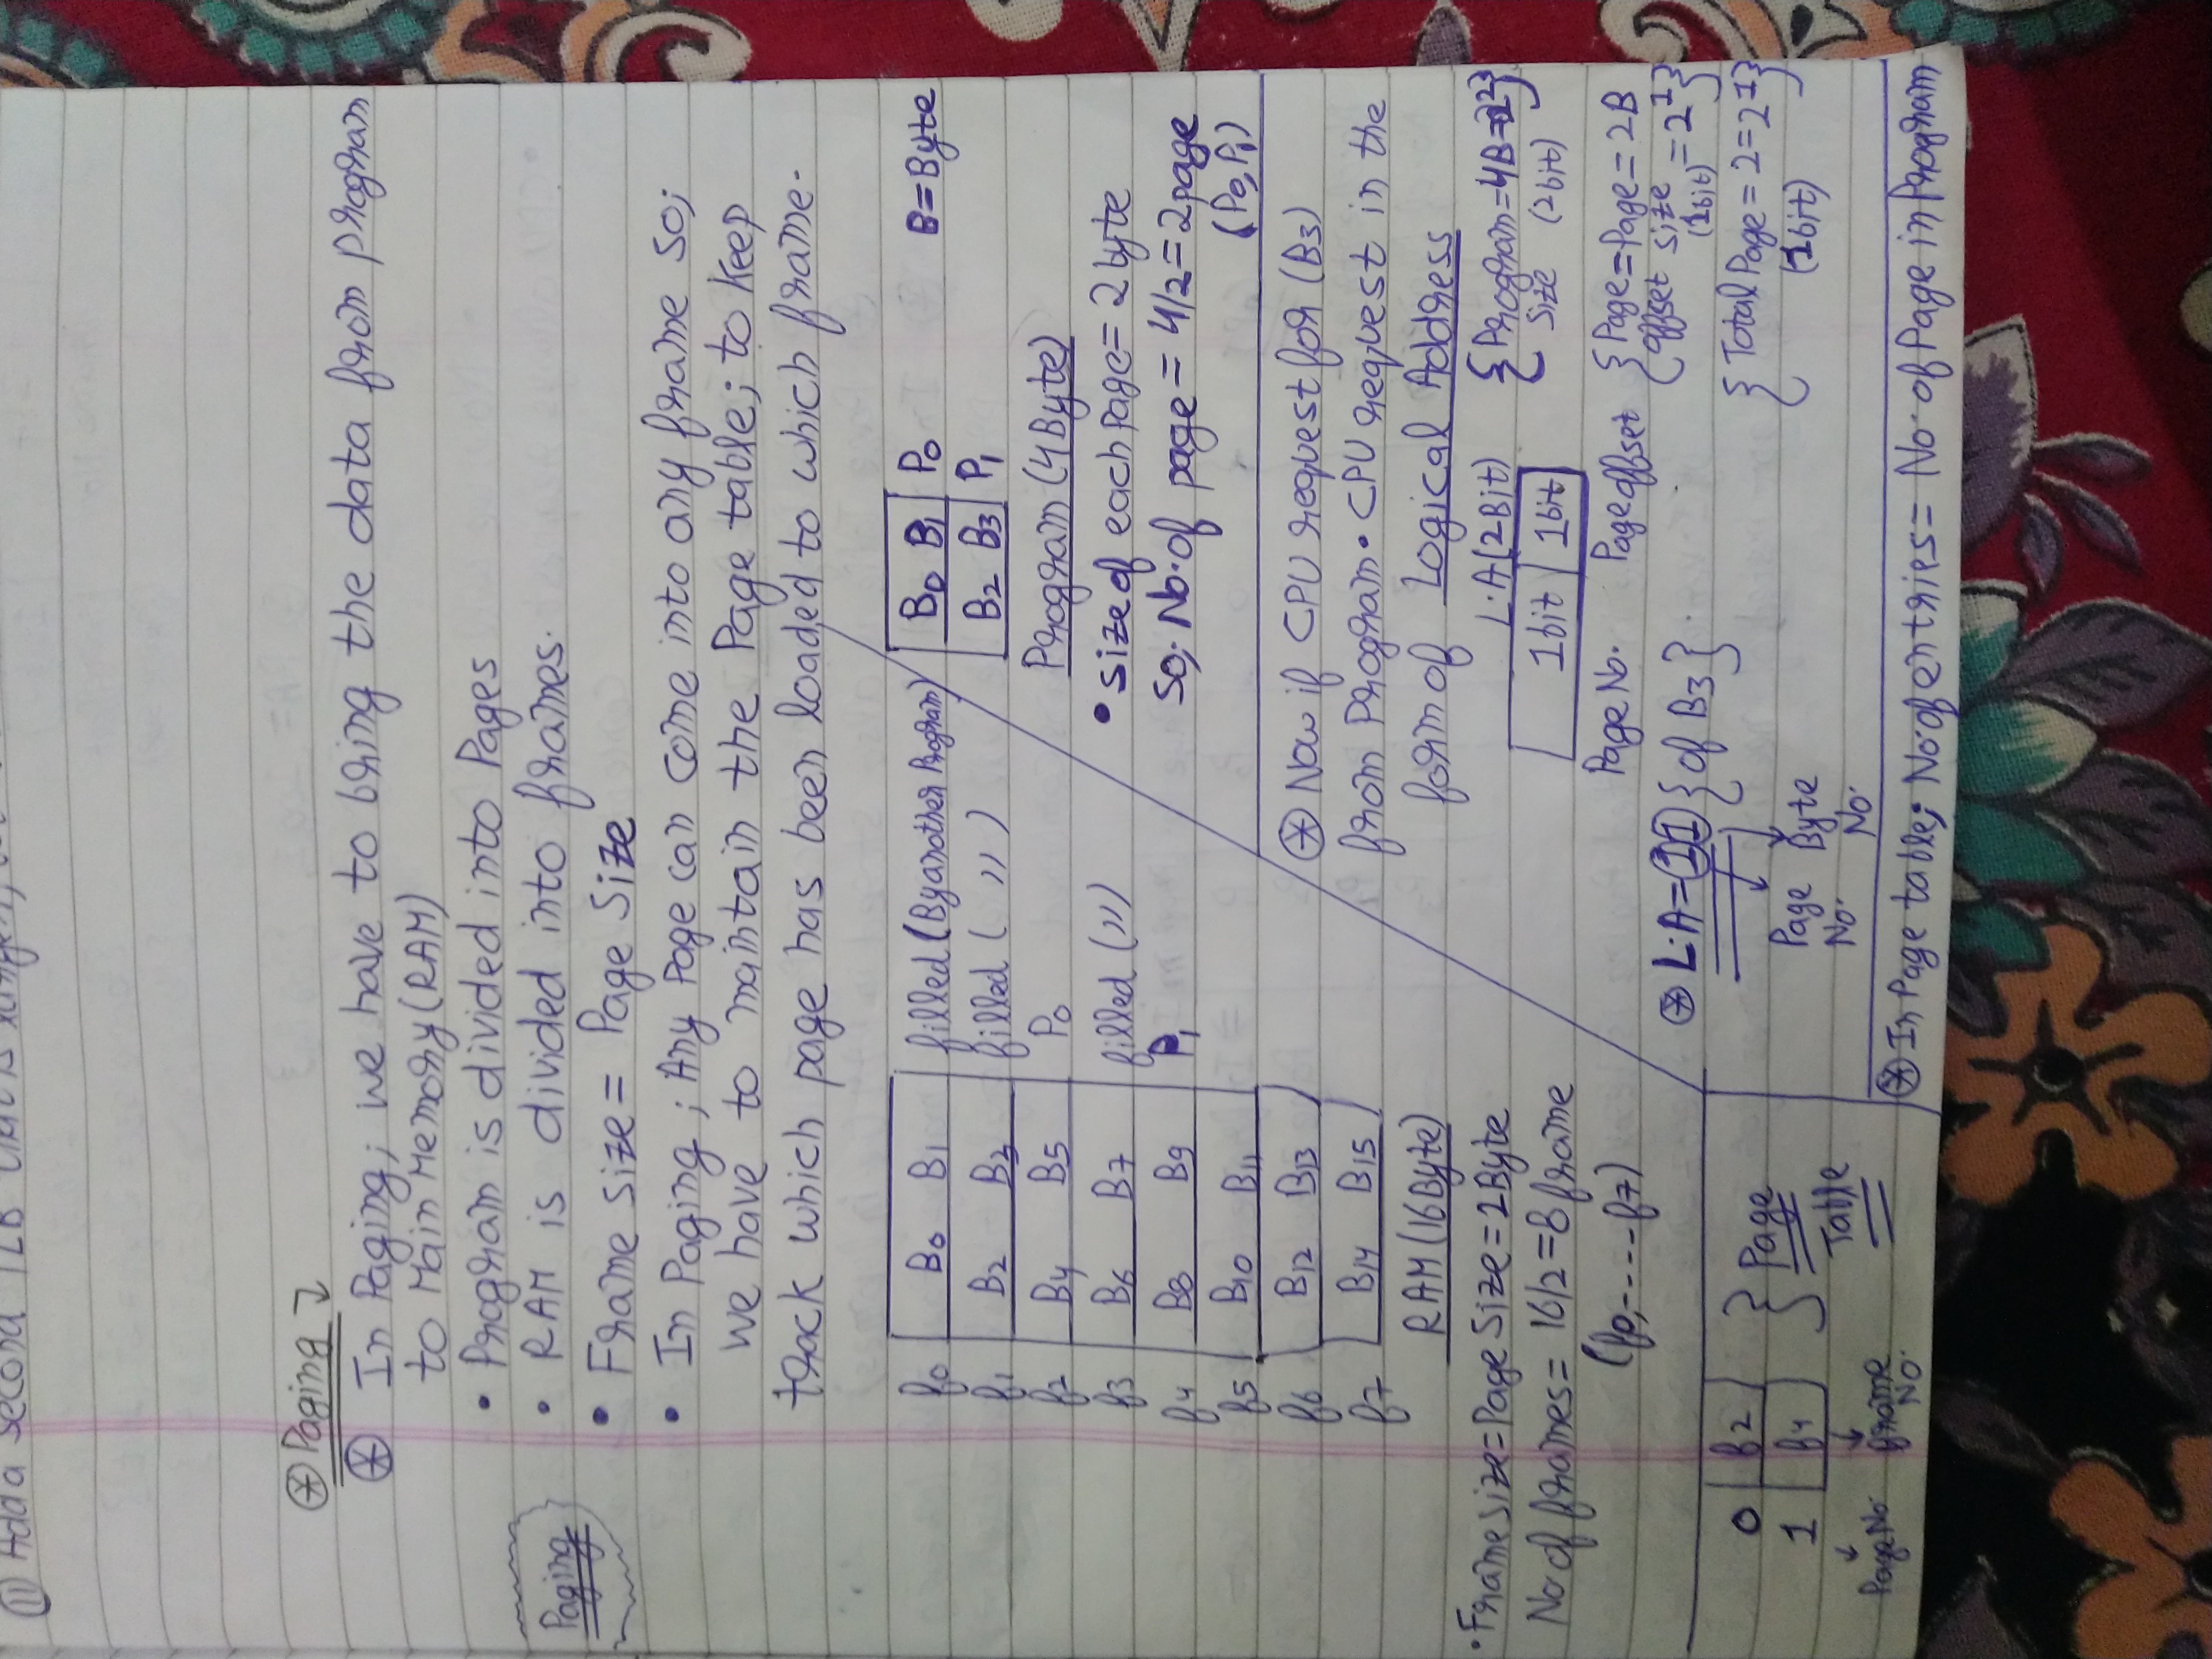 (11) Add a second TLB that is larger,
⊛ Paging ↴
⊛ In Paging; we have to bring the data from program
to Main Memory (RAM)
• Program is divided into Pages
• RAM is divided into frames.
Paging
• Frame size = Page Size
• In Paging; Any Page can come into any frame so;
we have to maintain the Page table; to keep
track which page has been loaded to which frame.
f0 B0 B1 filled (By another Program)
f1 B2 B3 filled ( ,, )
f2 B4 B5 P0
f3 B6 B7 filled (,,)
f4 B8 B9 P1
f5 B10 B11
f6 B12 B13
f7 B14 B15
RAM (16 Byte)
• Frame size = Page Size = 2 Byte
No of frames = 16/2 = 8 frame
(f0,----f7)
B0 B1 P0 B = Byte
B2 B3 P1
Program (4 Byte)
• size of each page = 2 byte
so; No. of page = 4/2 = 2 page
(P0, P1)
⊛ Now if CPU request for (B3)
from Program. CPU request in the
form of Logical Address
L.A (2 Bit) {Program = 4B = 2²}
size (2 bit)
1 bit 1 bit
Page No. Page offset {Page = Page = 2B
offset size = 2¹}
(1 bit)
⊛ L.A = 11 {of B3}
Page Byte
No. No.
{Total Page = 2 = 2¹}
(1 bit)
0 f2 } Page
1 f4 Table
Page No frame
No.
⊛ In Page table; No. of entries = No. of Page in Program